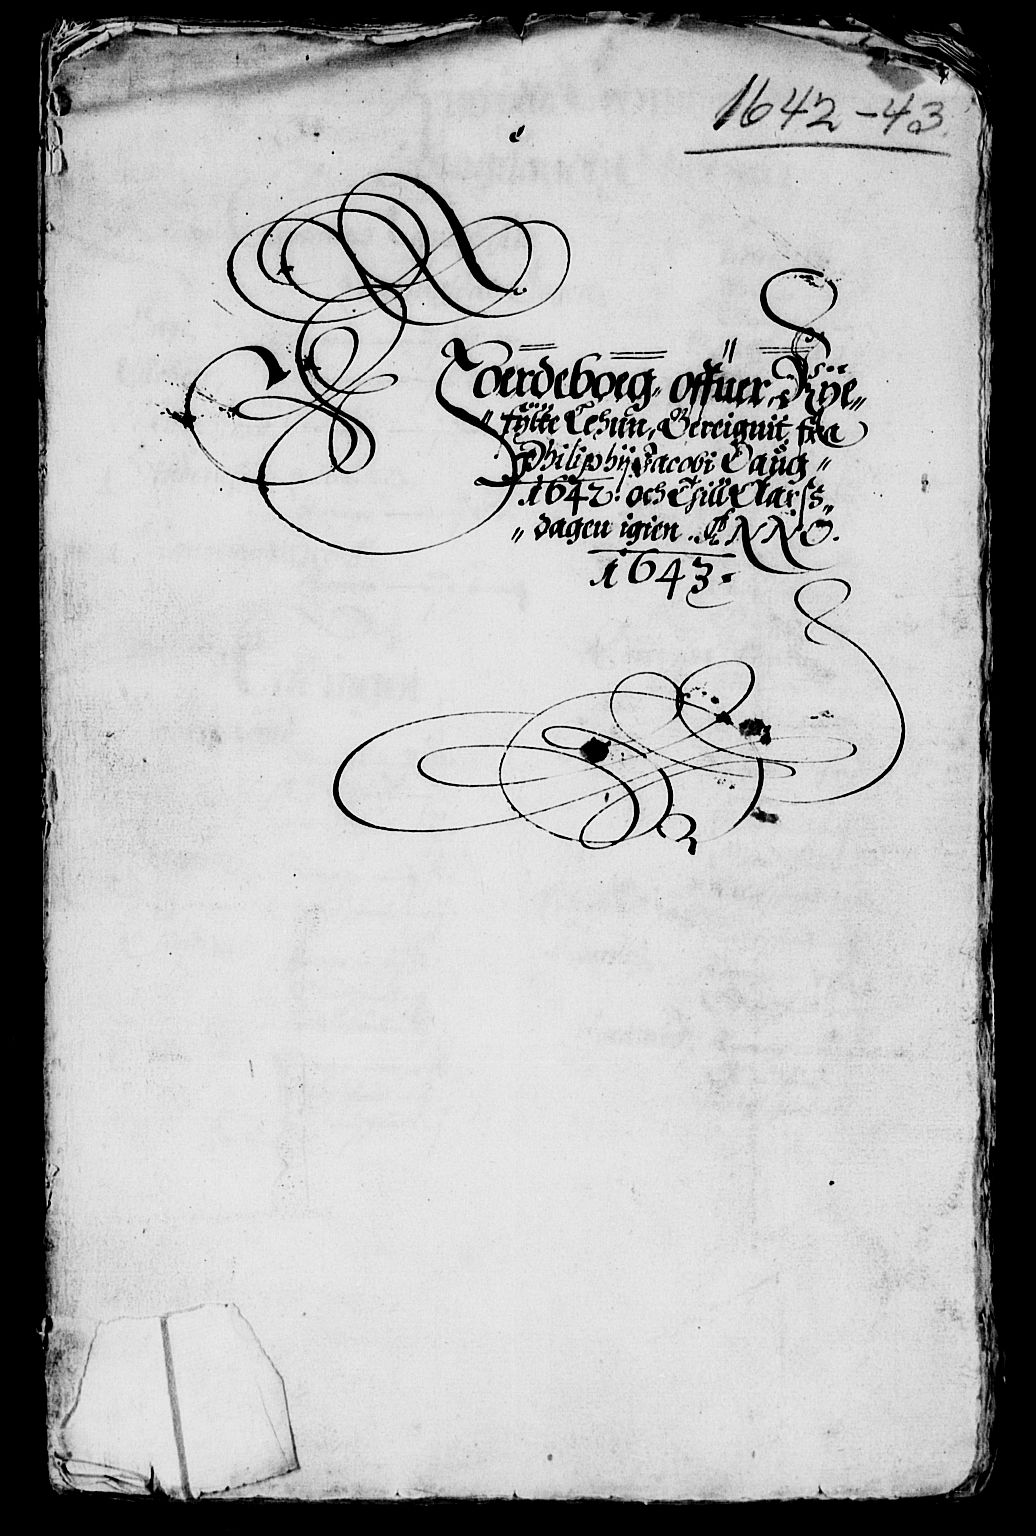 1642-43.
Joerdeboeg, offuer, Rÿe„
„fÿlke Lehnn, Bereignit fra
Philiphij Jacobi Daug„
1642. och Thill Aarsß„
„dagen igien. ANNO.
1643.